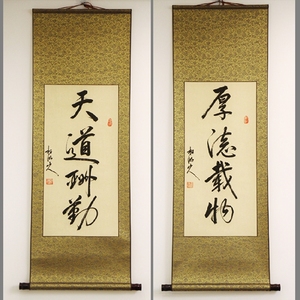 天道酬勤
厚德载物